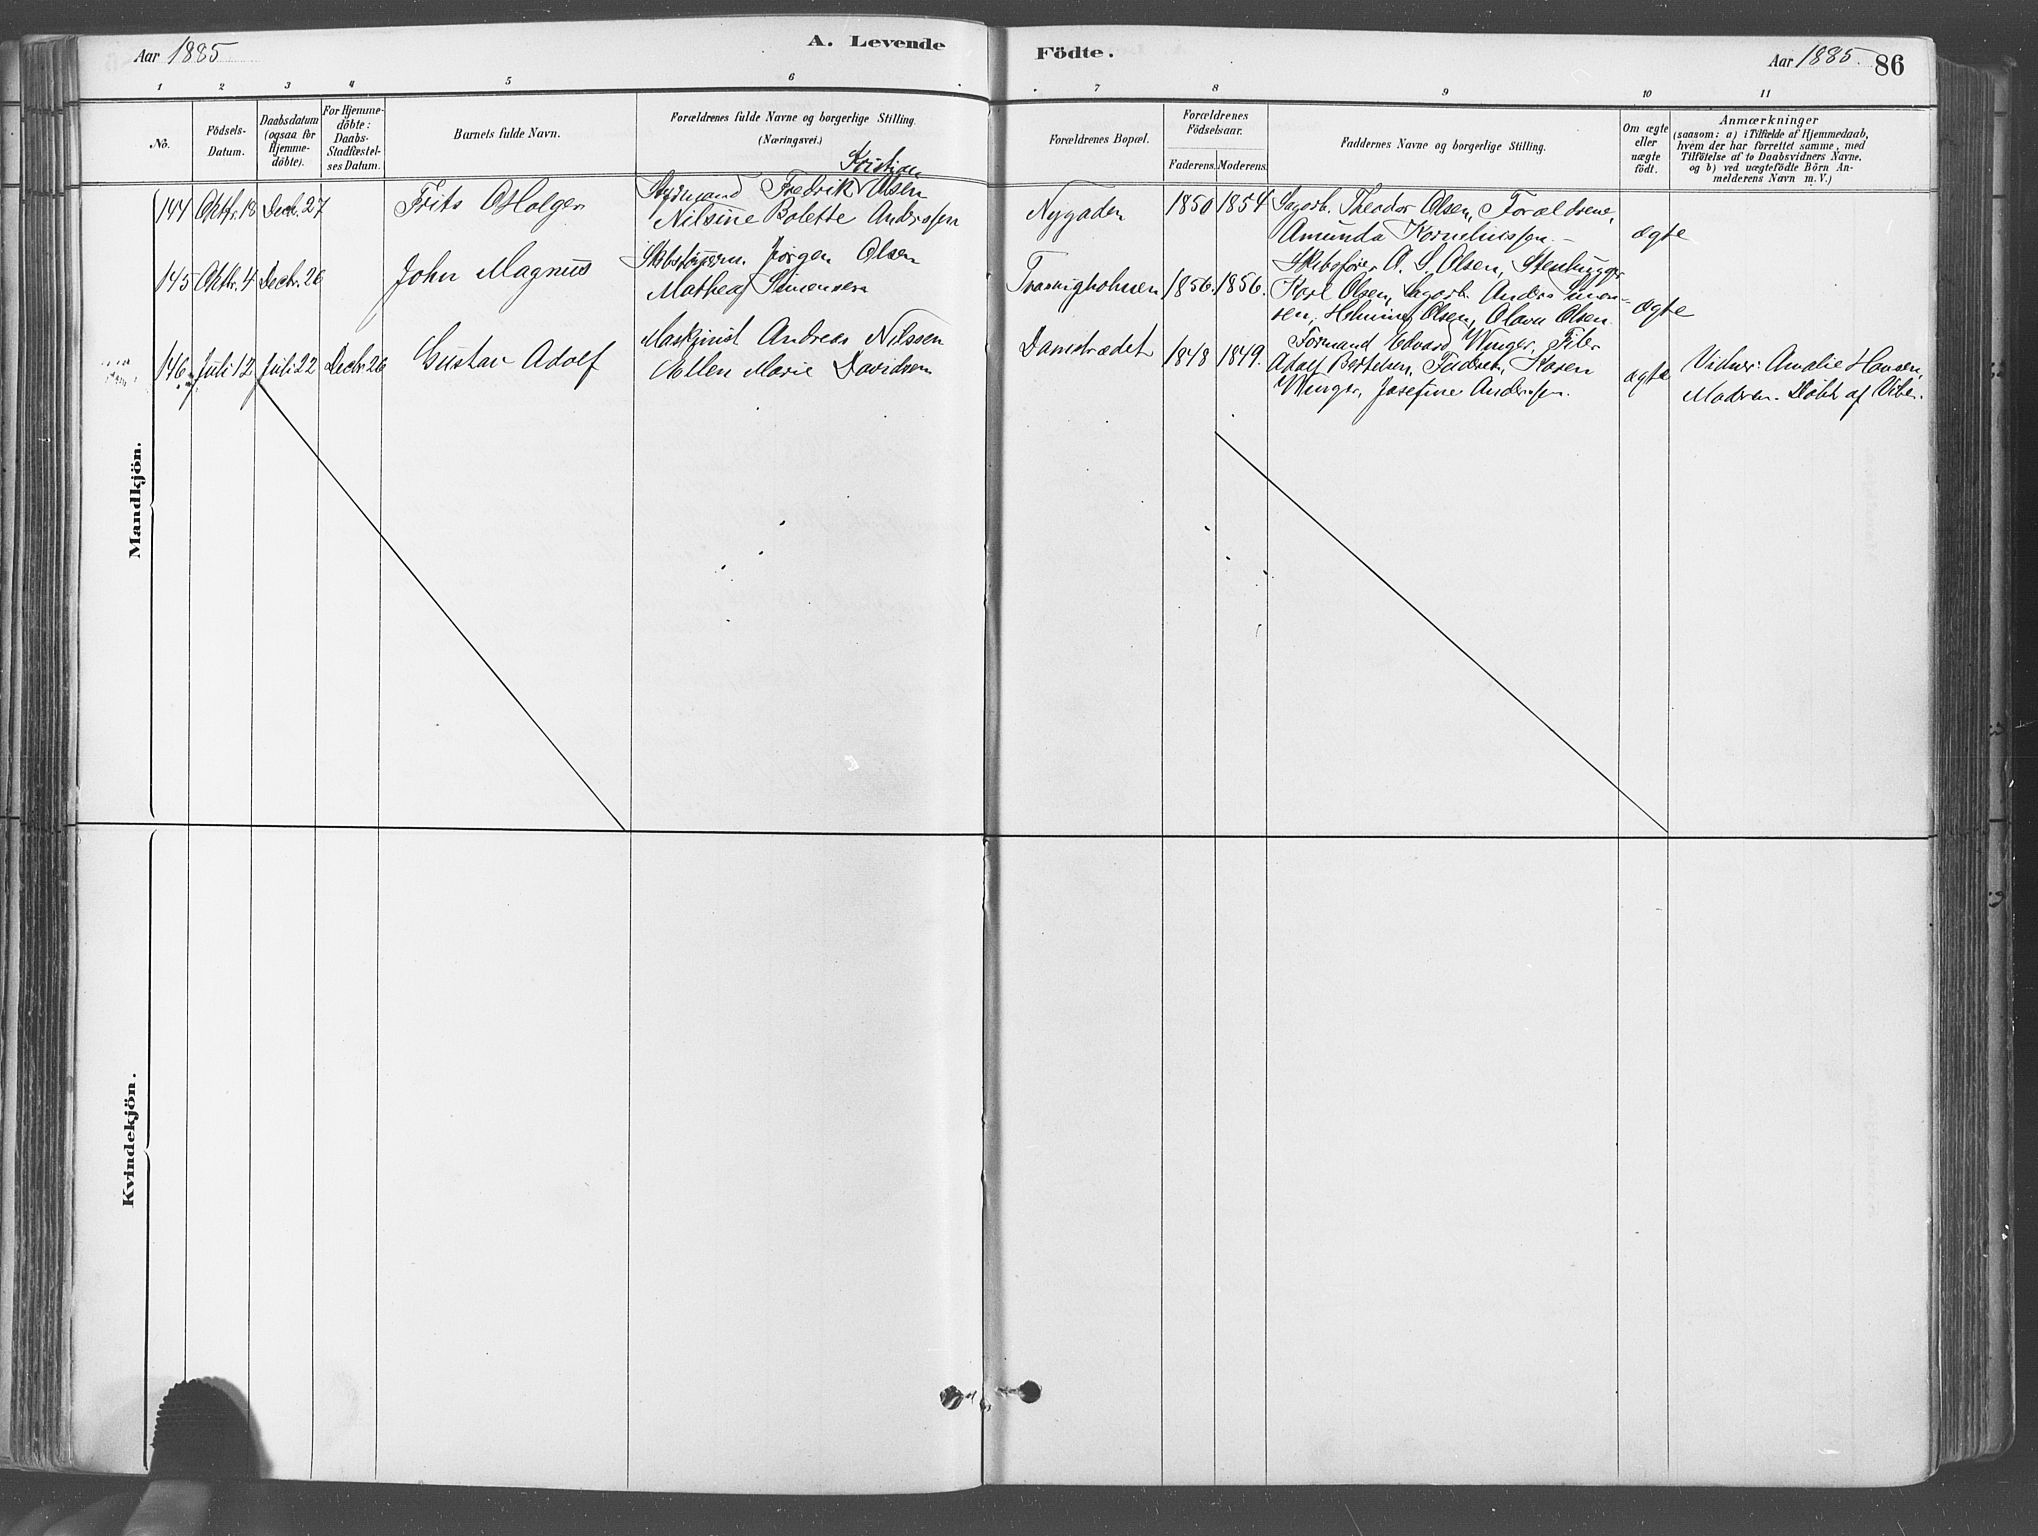 Aar 1885
A. Levende
Födte.
Aar 1885.
86
1 2 3 4 5 6 7 8 9 10 11
No.
Födsels-
Datum.
Daabsdatum
(ogsaa for
Hjemme-
döbte).
For Hjemme-
döbte:
Daabs-
Stadfæstel-
ses Datum.
Barnets fulde Navn.
Forældrenes fulde Navne og borgerlige Stilling.
(Næringsvei.)
Forældrenes Bopæl.
Forældrenes
Födselsaar.
Faderens. Moderens.
Faddernes Navne og borgerlige Stilling.
Om ægte
eller
uægte
födt.
Anmærkninger
(saasom: a) i Tilfælde af Hjemmedaab,
hvem der har forrettet samme, med
Tilföielse af to Daabsvidners Navne,
og b) ved uægtefödte Börn An-
melderens Navn m. V.)
Mandkjön.
144 Oktbr. 18 Decb. 27
Frits Holger
Kristian
Styrmand Fredrik Olsen
Nilsine Bolette Anderssen
Nygaden
1850 1854
Sagarb. Theodor Olsen, Forældrene,
Amunda Korneliussen.
ægte
145 Oktbr. 4 Decbr. 26
John Magnus
Skibstømm. Jørgen Olsen
Mathea Simensen
Trosvigholmen
1856. 1856.
Skibsfører A. S. Olsen, Stenhugger
Karl Olsen, Sagarb. Anders Simen-
sen, Helmine Olsen, Olava Olsen.
ægte
146 Juli 12 Juli 22 Decbr 26
Gustav Adolf
Maskinist Andreas Nilssen
Ellen Marie Davidsen
Damstrædet
1848 1849.
Formand Edvard Winger, Filer
Adolf Bertelsen, Karen
Winger, Josefine Anderssen.
ægte
Vidner: Amalie Hansen,
Modren. Döbt af
Kvindekjön.